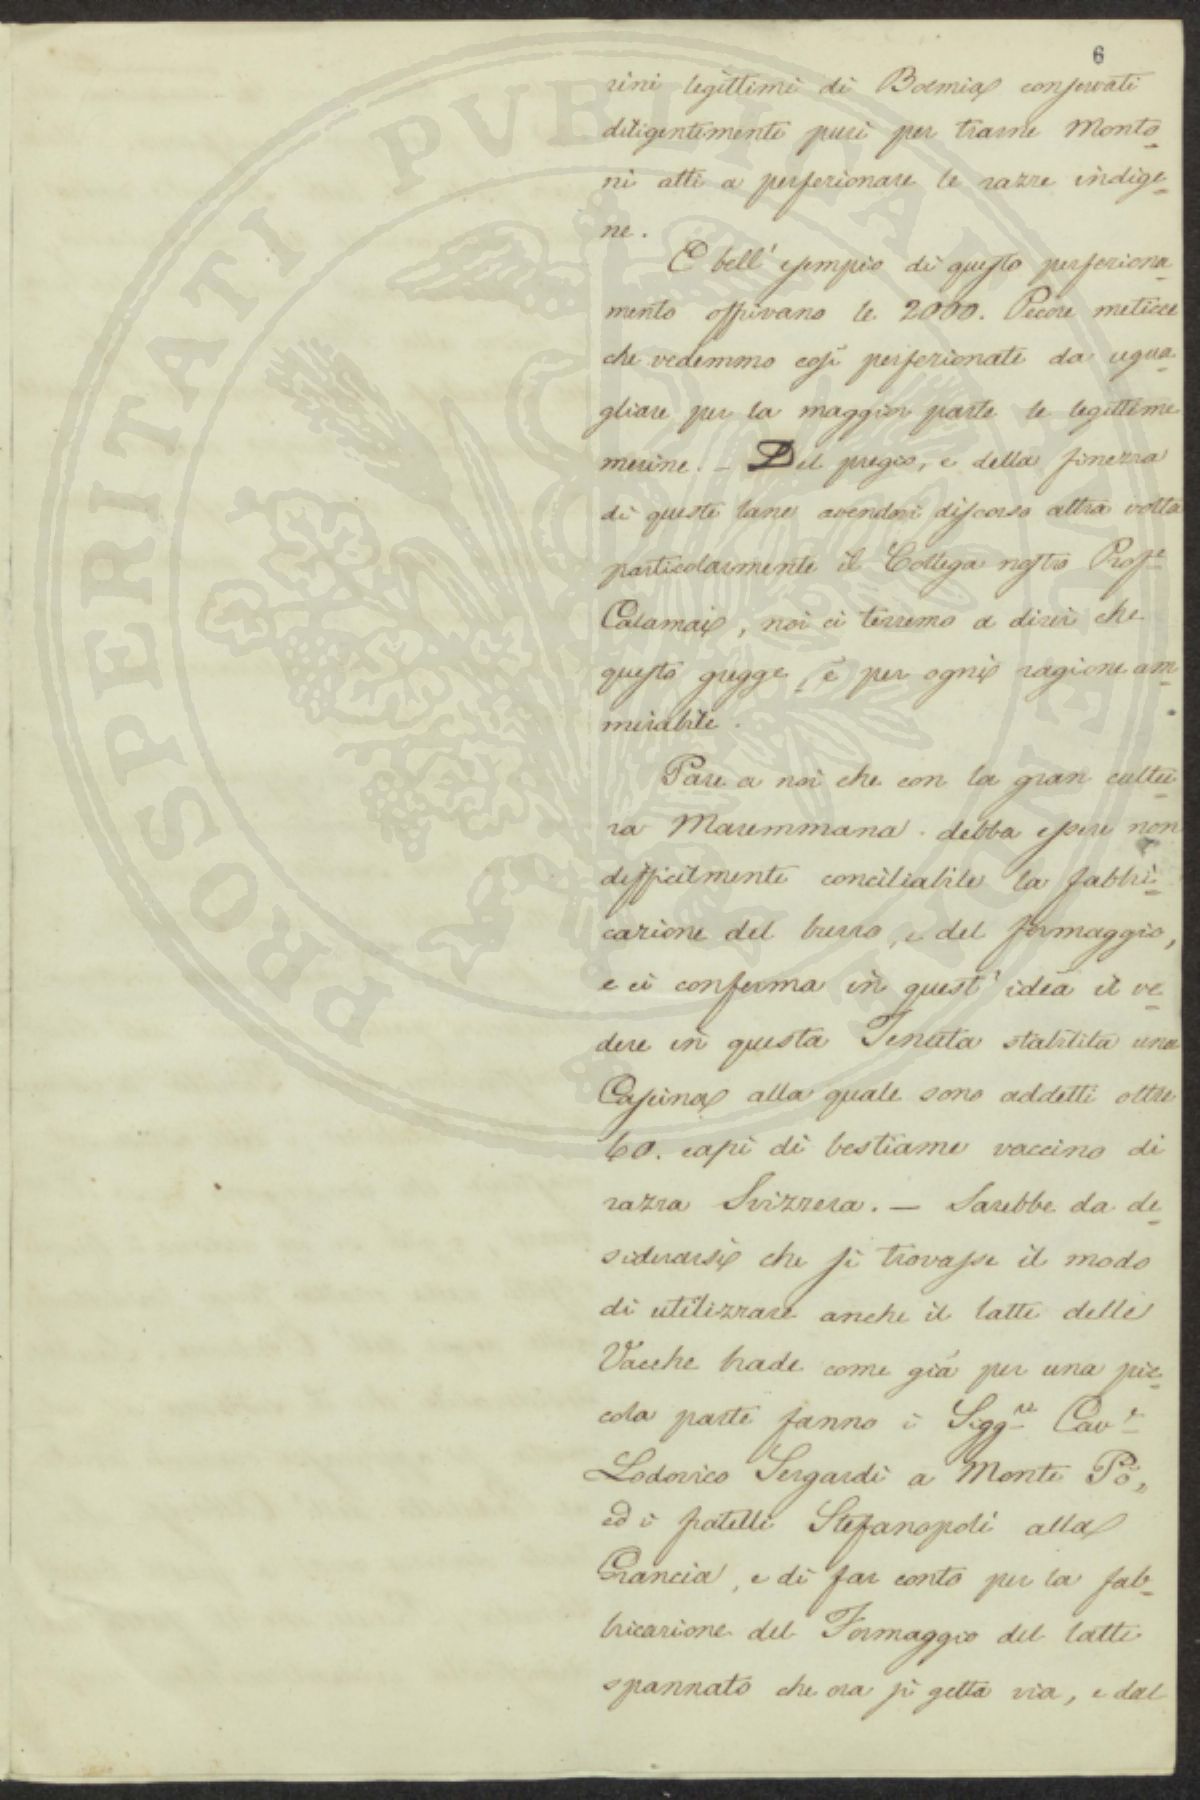 6
rini legittimi di Boemia conservati
diligentemente puri per trarne Monto-
ni atti a perfezionare le razze indige-
ne.
E bell' esempio di questo perfeziona-
mento offrivano le 2000. Pecore meticce
che vedemmo così perfezionate da ugua-
gliare per la maggior parte le legittime
merine. — Del pregio, e della finezza
di queste lane avendovi discorso altra volta
particolarmente il Collega nostro Profe
Calamai, noi ci terremo a dirvi che
questo gregge, è per ogni ragione am-
mirabile.
Pare a noi che con la gran cultu-
ra Maremmana debba essere non
difficilmente conciliabile la fabbri-
cazione del burro, e del formaggio,
e ci conferma in quest' idea il ve-
dere in questa Tenuta stabilita una
Cascina alla quale sono addetti oltre
60. capi di bestiame vaccino di
razza Svizzera. — Sarebbe da de-
siderarsi che si trovasse il modo
di utilizzare anche il latte delle
Vacche brade come già per una pic-
cola parte fanno i Siggre Cave
Lodovico Sergardi a Monte Pò,
ed i fratelli Stefanopoli alla
Grancia, e di far conto per la fab-
bricazione del Formaggio del latte
spannato che ora si getta via, e dal
PROSPERITATI PVBLICAE AVGENDAE